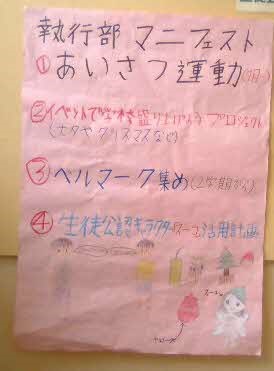 執行部 マニフェスト
① あいさつ運動
② イベントで学校盛り上げようプロジェクト
(七夕やクリスマスなど)
③ ベルマーク集め (2学期から)
④ 生徒公認キャラクター 活用計画